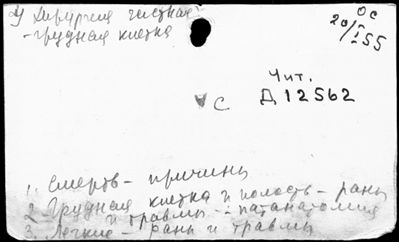 4) Хирургия частная
- грудная клетка
ОС
20/I 55
Чит.
Д 12562
С
1. Смерть - причины
2. Грудная клетка и полость - раны
и травмы - патанатомия
3. Легкие - раны и травмы